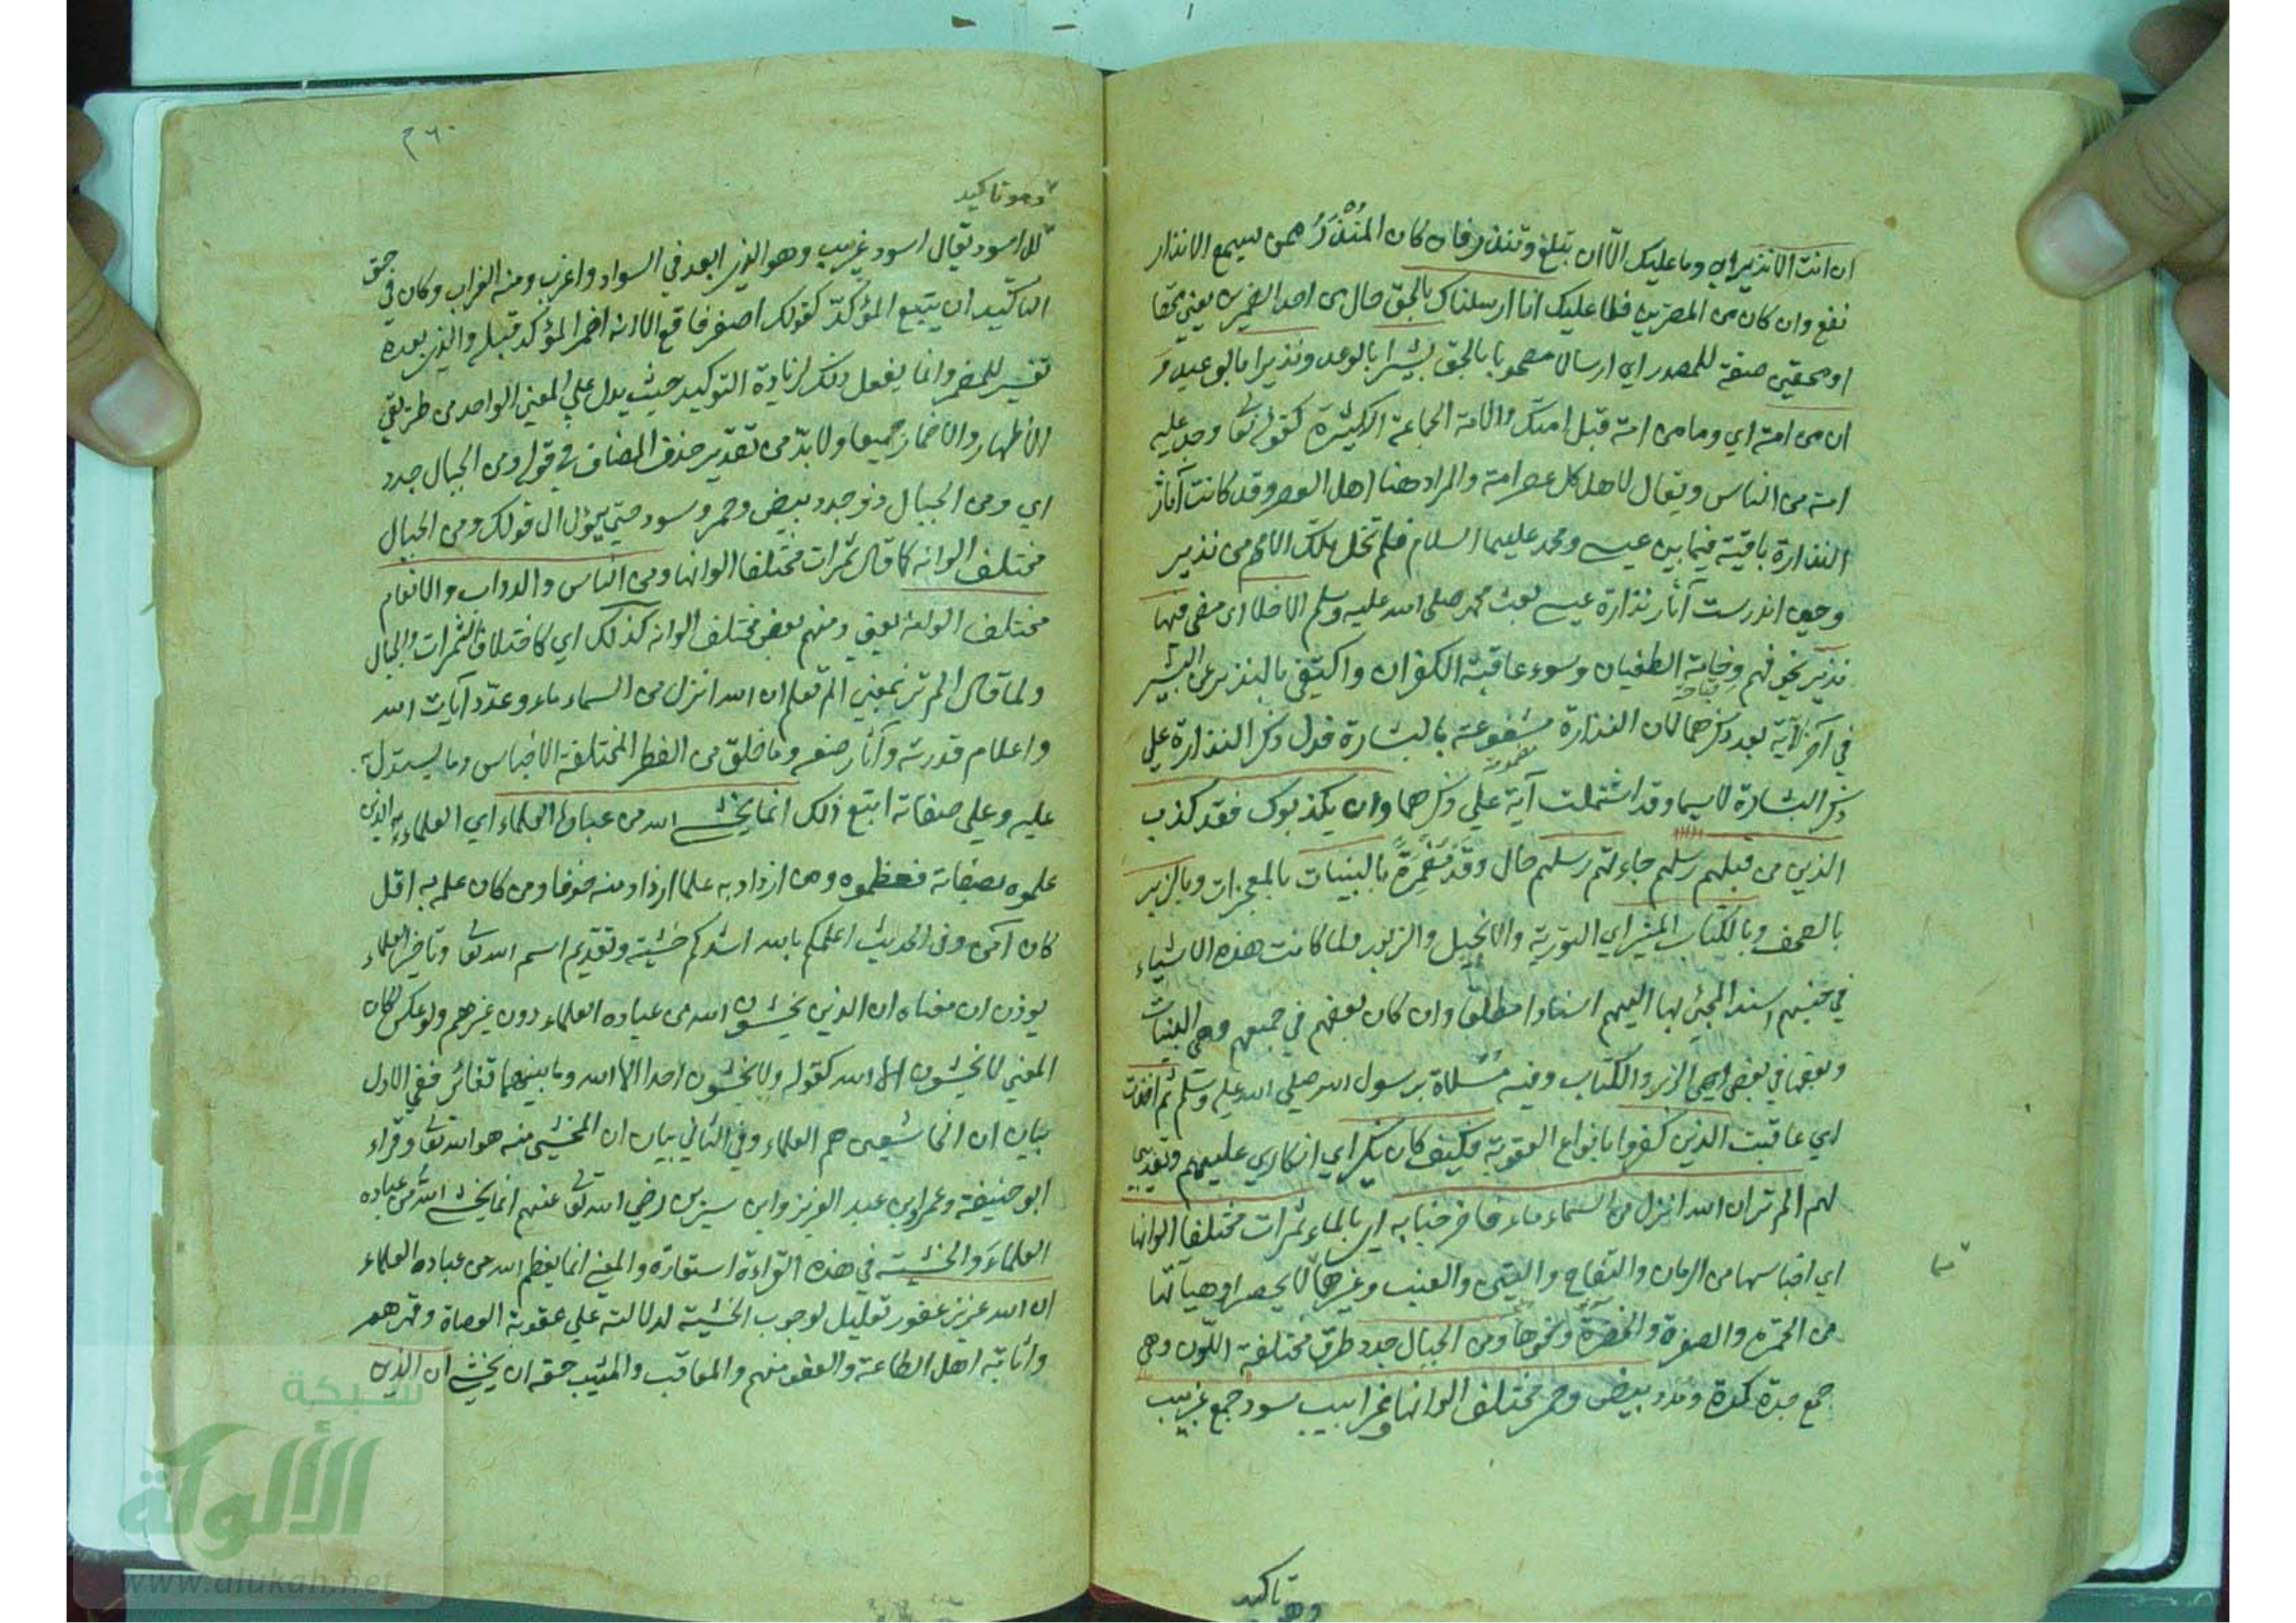 ان انت الا نذير اي وما عليك الا ان تبلغ وتنذر فان كان المُنْذَرُ ممن يسمع الانذار
نفع وان كان من المصرين فلا عليك انا ارسلناك بالحق حال من احد الضميرين يعني محقا
او محقين صفة للمصدر اي ارسالا مصحوبا بالحق بشيرا بالوعد ونذيرا بالوعيد و
ان من امة اي وما من امة قبل امتك والامة الجماعة الكثيرة كقوله تعا وجد عليه
امة من الناس ويقال لاهل كل عصر امة والمراد هنا اهل العصر وقد كانت آثار
النذارة باقية فيما بين عيسى ومحمد عليهما السلام فلم تخل تلك الامم من نذير
وحين اندرست آثار نذارة عيسى بعث محمد صلى الله عليه وسلم الا خلا اى مضى فيها
نذير يخوفهم وخامة الطغيان وسوء عاقبة الكفران واكتفى بالنذير عن البشير
في آخر الآية بعد ذكرهما لان النذارة مشفوعة بالبشارة فدل ذكر النذارة علي
ذكر البشارة لاسيما وقد اشتملت آية علي ذكرهما وان يكذبوك فقد كذب
الذين من قبلهم رسلهم جاءتهم رسلهم حال وقد مُضْمَرَةٌ بالبينات بالمعجزات وبالزبر
بالصحف وبالكتاب المنير اي التورية والانجيل والزبور ولما كانت هذه الاشياء
في جنسهم اسند المجئ بها اليهم اسنادا مطلقا وان كان بعضهم في جميعهم وهي البينات
وبعضها في بعض وهي الزبر والكتاب وفيه مسلاة برسول الله صلى الله عليه وسلم ثم اخذت
اي عاقبت الذين كفروا بانواع العقوبة فكيف كان نكير اي انكاري عليهم وتعذيبي
لهم الم تر ان الله انزل من السماء ماء فاخرجنا به اي بالماء ثمرات مختلفا الوانها
اي اجناسها من الرمان والتفاح والتين والعنب وغيرها لا يحصر او هيآتها
من الحمرة والصفرة والخضرة ونحوها ومن الجبال جدد طرق مختلفة اللون وهي
جمع جدة كمدة ومدد بيض وحمر مختلف الوانها وغرابيب سود جمع غربيب
وهو تاكيد
وهو تاكيد
للاسود يقال اسود غربيب وهو الذي ابعد في السواد واغرب ومنه الغراب وكان في حق
التاكيد ان يتبع المؤكّد كقولك اصفر فاقع الا انه اضمر المؤكد قبله والذي بعده
تفسير للمضمر وانما يفعل ذلك لزيادة التوكيد حيث يدل علي المعني الواحد من طريقي
الاظهار والاضمار جميعا ولا بدّ من تقدير حذف المضاف في قوله ومن الجبال جدد
اي ومن الجبال ذو جدد بيض وحمر وسود حتي يؤل الى قولك ومن الجبال
مختلف الوانه كما قال ثمرات مختلفا الوانها ومن الناس والدواب والانعام
مختلف الوانه يعني ومنهم بعض مختلف الوانه كذلك اي كاختلاف الثمرات والجبال
ولما قال الم تر بمعني الم تعلم ان الله انزل من السماء ماء وعدّد آيات الله
واعلام قدرته وآثار صنعه وما خلق من الفطر المختلفة الاجناس وما يستدل به
عليه وعلي صفاته اتبع ذلك انما يخشى الله من عباده العلماء اي العلماء به الذين
علموه بصفاته فعظموه ومن ازداد به علما ازداد منه خوفا ومن كان علمه به اقل
كان آمن وفى الحديث اعلمكم بالله اشدكم خشية وتقديم اسم الله تعا وتاخير العلماء
يوذن ان معناه ان الذين يخشون الله من عباده العلماء دون غيرهم ولو عكس لكان
المعني لا يخشون الا الله كقوله ولا يخشون احدا الا الله وما بينهما تغائر ففي الاول
بيان ان الخاشعين هم العلماء وفي الثاني بيان ان المخشي منه هو الله تعا وقراء
ابو حنيفة وعمر ابن عبد العزيز وابن سيرين رضي الله تعا عنهم انما يخشى الله من عباده
العلماءَ والخشية في هذه القراءة استعارة والمعني انما يعظم الله من عباده العلماء
ان الله عزيز غفور تعليل لوجوب الخشية لدلالته علي عقوبة العصاة وقهرهم
واثابة اهل الطاعة والعفو منهم والمعاقب والمثيب حقه ان يخشى ان الذين
شبكة
الألوكة
www.alukah.net